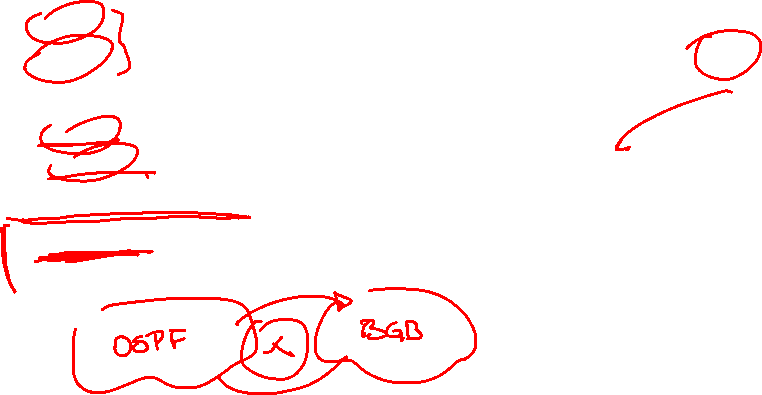 OSPF
BGB